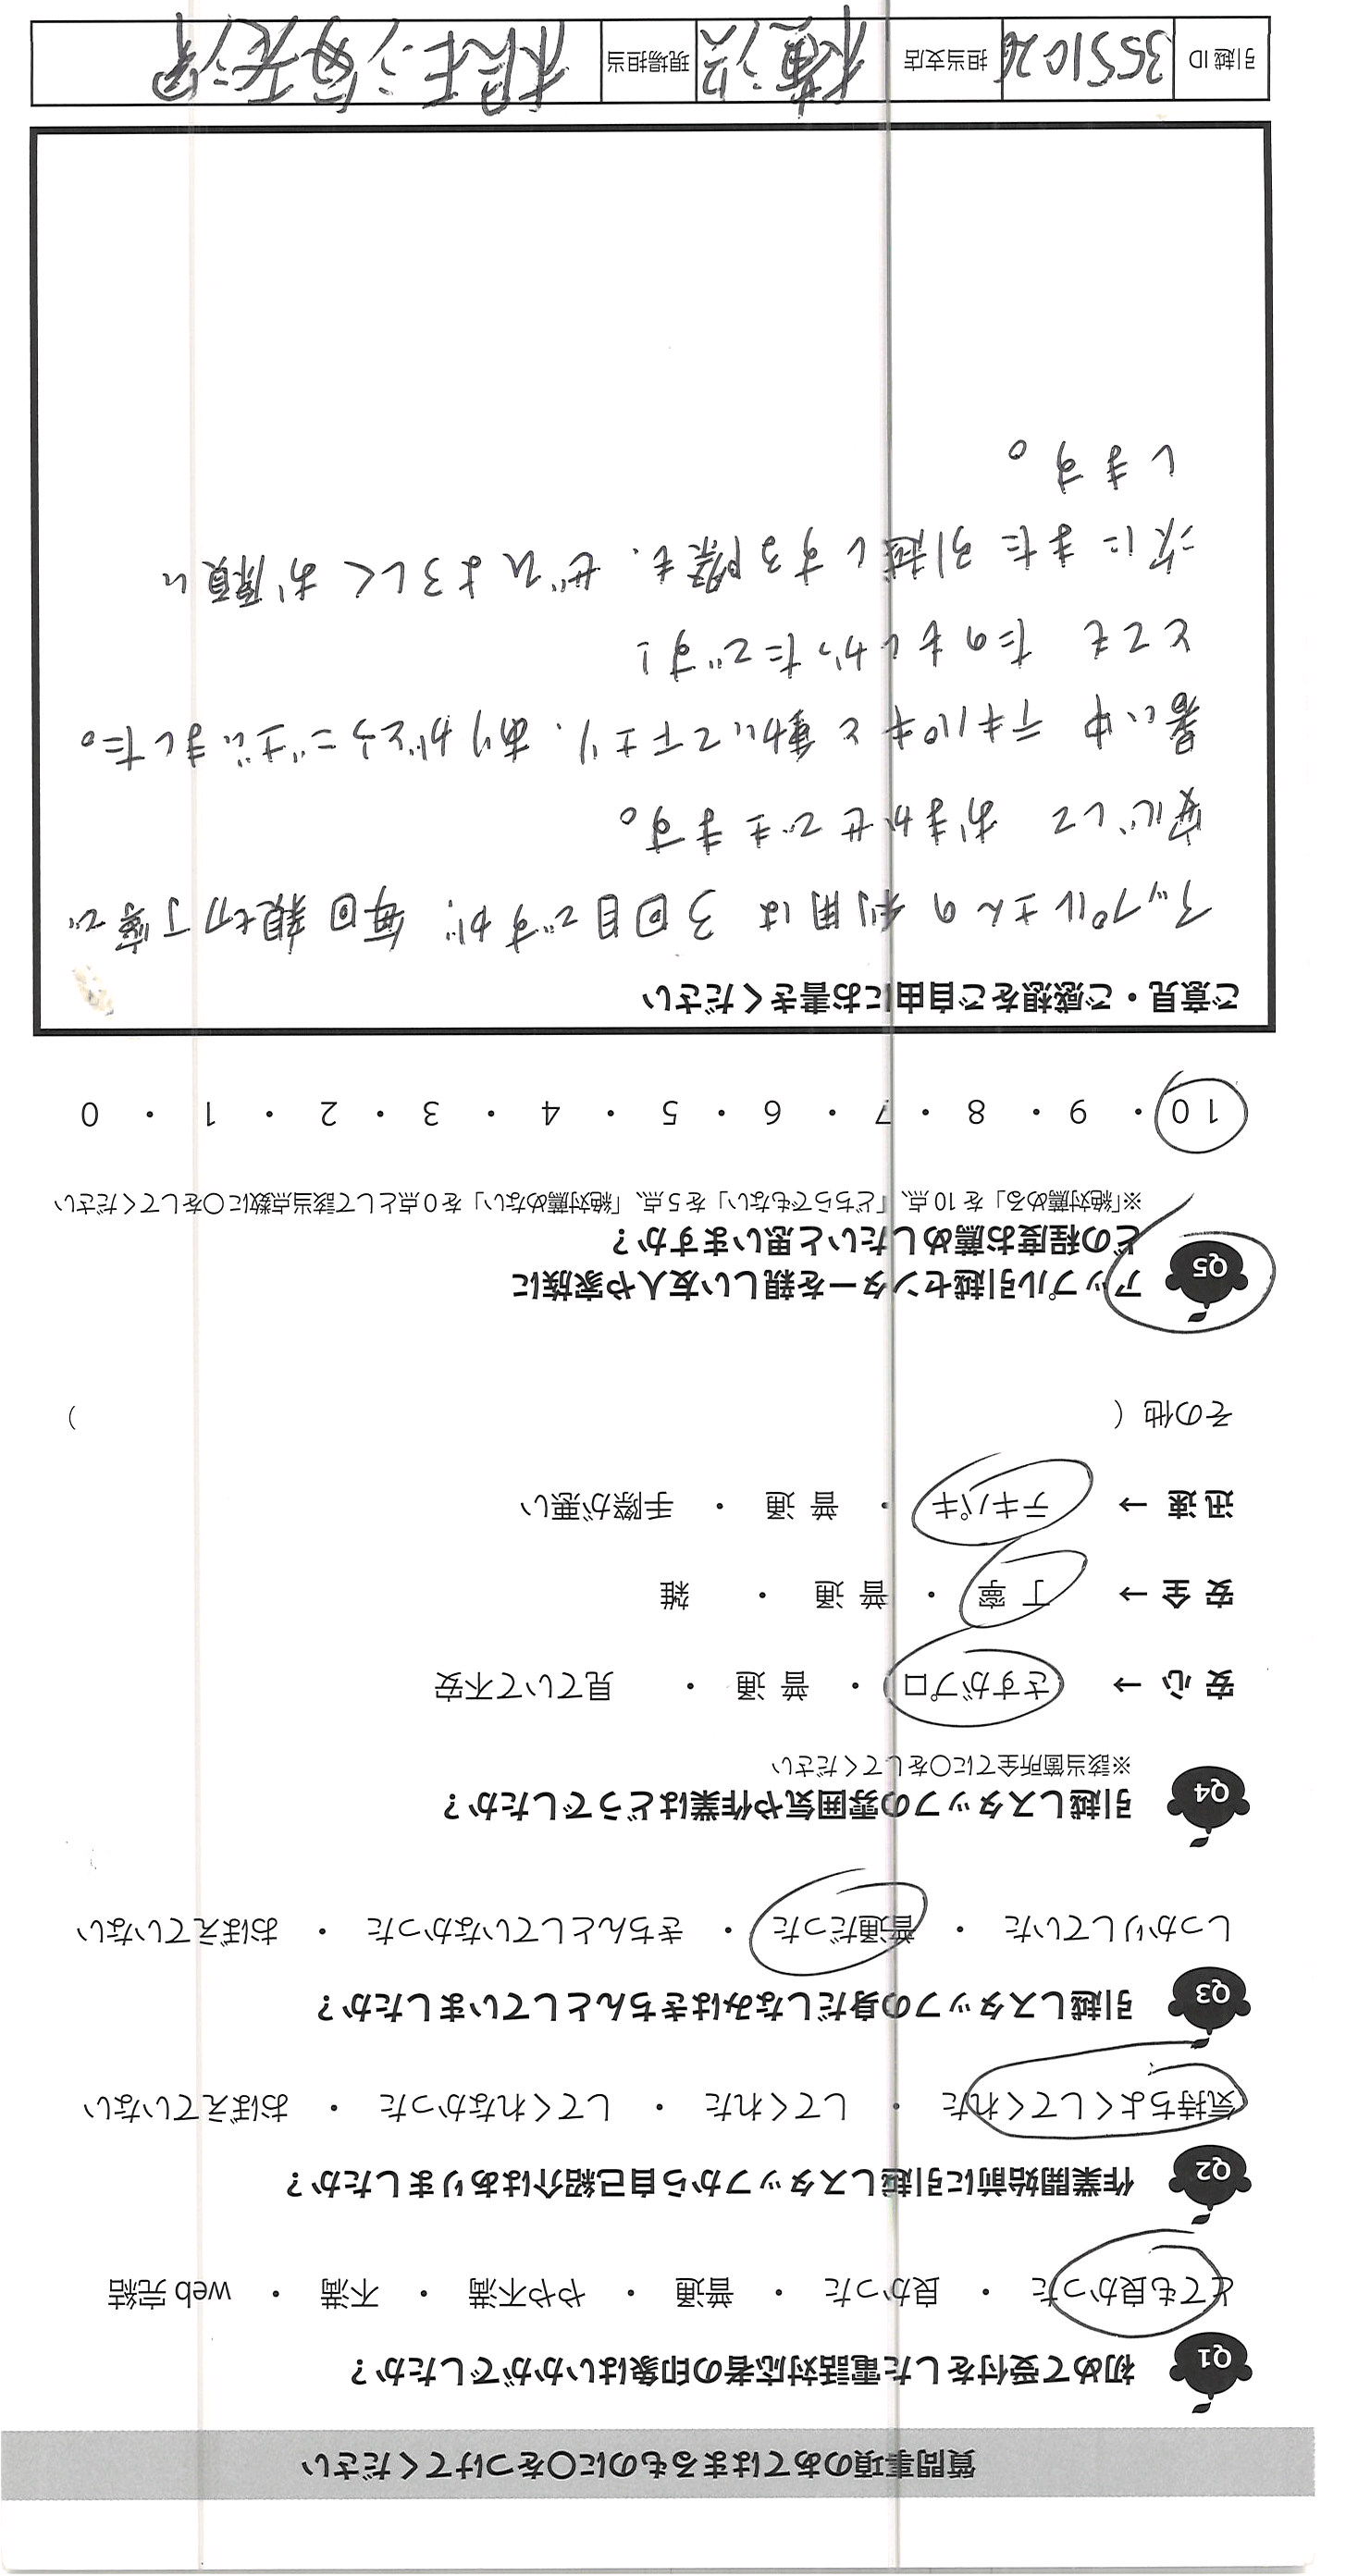 質問事項のあてはまるものに○をつけてください
Q1 初めて受付をした電話対応者の印象はいかがでしたか？
とても良かった ・ 良かった ・ 普通 ・ やや不満 ・ 不満 ・ web 完結
Q2 作業開始前に引越しスタッフから自己紹介はありましたか？
気持ちよくしてくれた ・ してくれた ・ してくれなかった ・ おぼえていない
Q3 引越しスタッフの身だしなみはきちんとしていましたか？
しっかりしていた ・ 普通だった ・ きちんとしていなかった ・ おぼえていない
Q4 引越しスタッフの雰囲気や作業はどうでしたか？
※該当箇所全てに○をしてください
安 心 → さすがプロ ・ 普 通 ・ 見ていて不安
安 全 → 丁 寧 ・ 普 通 ・ 雑
迅 速 → テキパキ ・ 普 通 ・ 手際が悪い
その他（ ）
Q5 アップル引越センターを親しい友人や家族に
どの程度お薦めしたいと思いますか？
※「絶対薦める」を 10 点、「どちらでもない」を 5 点、「絶対薦めない」を 0 点として該当点数に○をしてください
10 ・ 9 ・ 8 ・ 7 ・ 6 ・ 5 ・ 4 ・ 3 ・ 2 ・ 1 ・ 0
ご意見・ご感想をご自由にお書きください
アップルさんの利用は 3回目ですが、毎回親切丁寧で
安心して おまかせできます。
暑い中 テキパキと動いて下さり、ありがとうございました。
とても たのもしかったです！
次にまた引越しする際も、ぜひよろしくお願い
します。
引越 ID 3551026 担当支店 横浜 現場担当